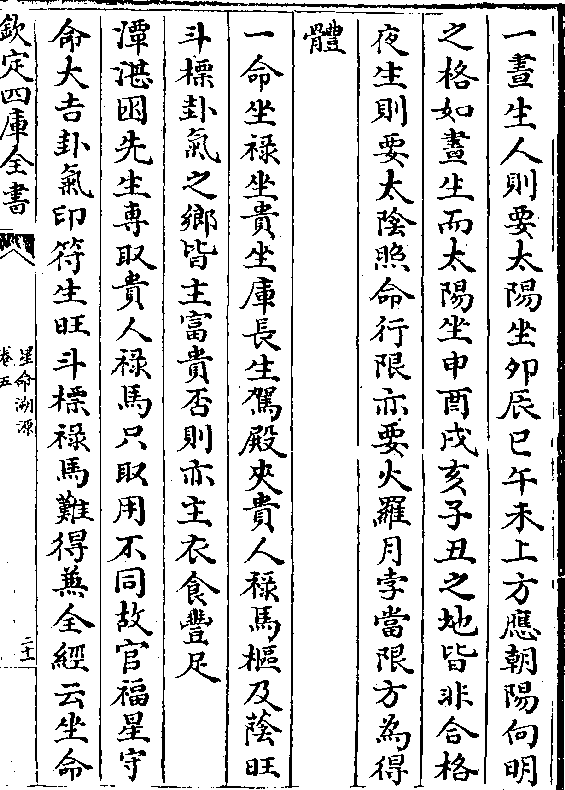 一晝生人則要太陽坐卯辰巳午未上方應朝陽向明
之格如晝生而太陽坐申酉戌亥子丑之地皆非合格
夜生則要太陰照命行限亦要火羅月孛當限方為得
體
一命坐祿坐貴坐庫長生駕殿夾貴人祿馬樞及蔭旺
斗標卦氣之鄉皆主富貴否則亦主衣食豐足
潭湛困先生專取貴人祿馬只取用不同故官福星守
命大吉卦氣印符生旺斗標祿馬難得兼全經云坐命
欽定四庫全書
星命溯源
卷五
二十一